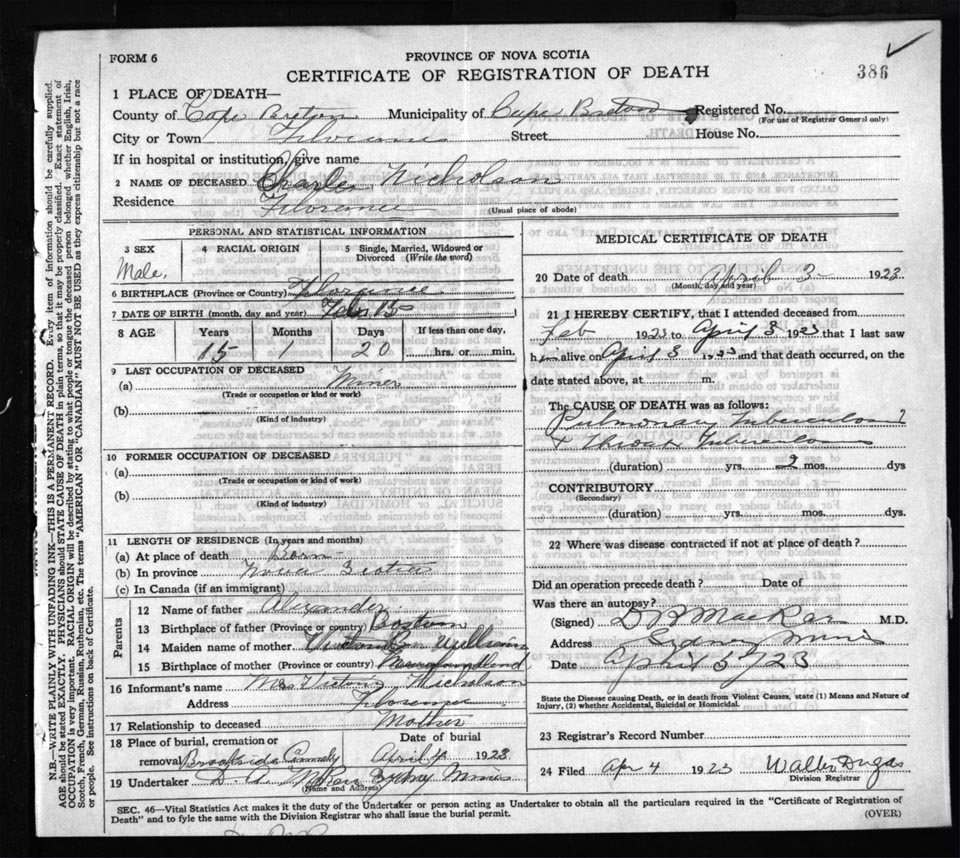 FORM 6
PROVINCE OF NOVA SCOTIA
CERTIFICATE OF REGISTRATION OF DEATH
386
1 PLACE OF DEATH—
County of Cape Breton Municipality of Cape Breton Registered No.
(For use of Registrar General only)
City or Town Florence Street House No.
If in hospital or institution, give name
2 NAME OF DECEASED Charles Nicholson
Residence Florence
(Usual place of abode)
PERSONAL AND STATISTICAL INFORMATION
3 SEX 4 RACIAL ORIGIN 5 Single, Married, Widowed or Divorced (Write the word)
Male,
6 BIRTHPLACE (Province or Country) Florence
7 DATE OF BIRTH (month, day and year) Feb 15
8 AGE Years Months Days If less than one day.
15 1 20 hrs. or min.
9 LAST OCCUPATION OF DECEASED
(a) Miner
(Trade or occupation or kind or work)
(b)
(Kind of industry)
10 FORMER OCCUPATION OF DECEASED
(a)
(Trade or occupation or kind of work)
(b)
(Kind of industry)
11 LENGTH OF RESIDENCE (In years and months)
(a) At place of death Born
(b) In province Nova Scotia
(c) In Canada (if an immigrant)
Parents
12 Name of father Alexander
13 Birthplace of father (Province or country) Boston
14 Maiden name of mother
15 Birthplace of mother (Province or country) Newfoundland
16 Informant's name Mrs Nicholson
Address Florence
17 Relationship to deceased Mother
18 Place of burial, cremation or removal Date of burial
Brookside April 4 1923
19 Undertaker D. A. Sydney Mines
(Name and Address)
MEDICAL CERTIFICATE OF DEATH
20 Date of death April 3 1923
(Month, day and year)
21 I HEREBY CERTIFY, that I attended deceased from
Feb 1923 to April 3 1923 that I last saw
him alive on April 3 1923 and that death occurred, on the
date stated above, at m.
The CAUSE OF DEATH was as follows:
Pulmonary Tuberculosis
& Throat Tuberculosis
(duration) yrs. 2 mos. dys
CONTRIBUTORY
(Secondary)
(duration) yrs. mos. dys.
22 Where was disease contracted if not at place of death?
Did an operation precede death? Date of
Was there an autopsy?
(Signed) M.D.
Address Sydney Mines
Date April 3/23
State the Disease causing Death, or in death from Violent Causes, state (1) Means and Nature of
Injury, (2) whether Accidental, Suicidal or Homicidal.
23 Registrar's Record Number
24 Filed Apr 4 1923 Walter Dugas
Division Registrar
SEC. 46—Vital Statistics Act makes it the duty of the Undertaker or person acting as Undertaker to obtain all the particulars required in the "Certificate of Registration of
Death" and to fyle the same with the Division Registrar who shall issue the burial permit.
(OVER)
N.B.—WRITE PLAINLY WITH UNFADING INK—THIS IS A PERMANENT RECORD. Every item of information should be carefully supplied.
AGE should be stated EXACTLY. PHYSICIANS should STATE CAUSE OF DEATH in plain terms, so that it may be properly classified. Exact statement of
OCCUPATION is very important. RACIAL ORIGIN will be described by stating to what people or tongue the deceased person belonged whether English, Irish,
Scotch, French, German, Russian, Ruthenian, etc. The terms "AMERICAN" OR "CANADIAN" MUST NOT BE USED as they express citizenship but not a race
or people. See instructions on back of Certificate.